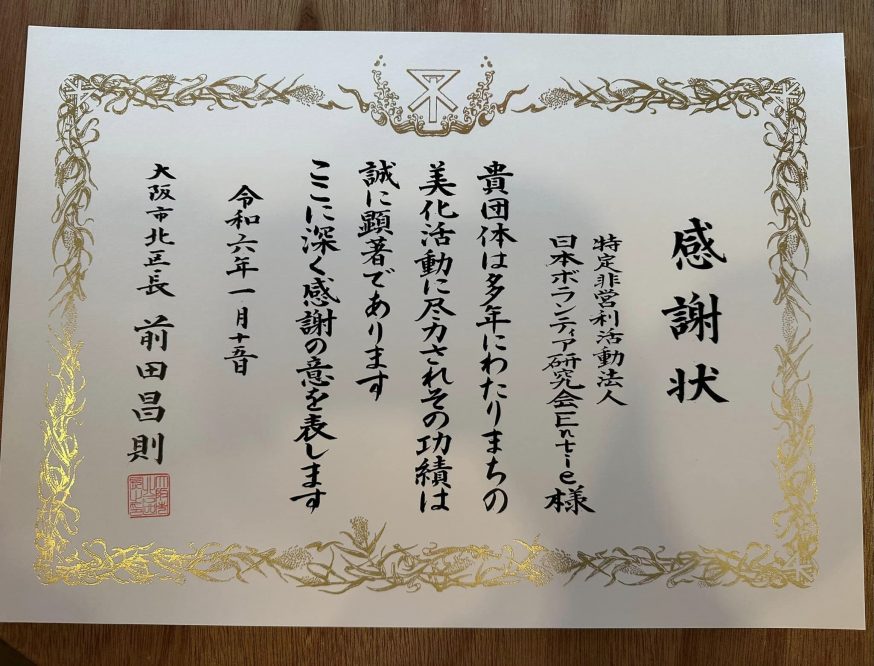 感謝状
特定非営利活動法人
日本ボランティア研究会Entie様
貴団体は多年にわたりまちの
美化活動に尽力されその功績は
誠に顕著であります
ここに深く感謝の意を表します
令和六年一月十五日
大阪市北区長 前田昌則